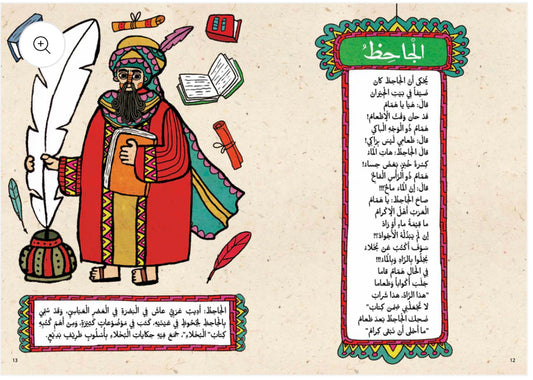 الجاحظُ
يُحْكى أنَّ الجاحِظَ كانَ
ضَيْفًا في بَيْتِ الجيرانِ
قالَ: هَيّا يا هَمّامُ
قَدْ حانَ وَقْتُ الإِطْعامِ!
هَمّامُ ذُو الوَجْهِ الباكي
قالَ: طَعامي لَيْسَ بِزاكي!
قالَ الجاحِظُ: هاتِ الماءَ
كِسْرَةَ خُبْزٍ، بَعْضَ حِساءِ!
هَمّامُ ذُو الرَّأْسِ الفالِحْ
قالَ: إنَّ الماءَ مالِحْ!!!
صاحَ الجاحِظُ: يا هَمّامُ
العَرَبُ أَهْلُ الإِكْرامِ
ما قيمَةُ ماءٍ أَوْ زادْ
إنْ لَمْ يَبْذُلْهُ الأَجْوادْ؟!
سَوْفَ أَكْتُبُ عَنْ بُخَلاءَ
بَخِلُوا بِالزّادِ وَبِالماءِ!!!
في الحالِ هَمّامُ قاما
جَلَبَ أَكْوابًا وَطَعاما
"هذا الزّادُ، هذا شَرابُ
لا تَجْعَلْني ضِمْنَ كِتابْ"
ضَحِكَ الجاحِظُ بَعْدَ طَعامْ
"ما أَحْلى أَنْ نَبْقى كِرامْ"
12
الجاحِظُ: أَديبٌ عَرَبِيٌّ عاشَ في البَصْرَةِ في العَصْرِ العَبّاسِيِّ. وَقَدْ سُمِّيَ
بِالجاحِظِ لِجُحوظٍ في عَيْنَيْهِ. كَتَبَ في مَوْضوعاتٍ كَثيرَةٍ، وَمِنْ أَهَمِّ كُتُبِهِ
كِتابُ "البُخَلاء". جَمَعَ فيهِ حِكاياتِ البُخَلاءِ بِأُسْلوبٍ طَريفٍ بَديعٍ.
13